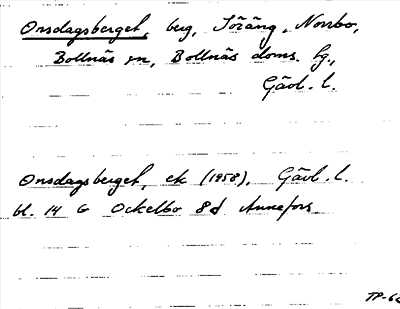 Onsdagsberget, berg, Söräng, Norrbo,
Bollnäs sn, Bollnäs doms. lg.,
Gävl. l.
Onsdagsberget, ek (1958), Gävl. l.
bl. 14 G Ockelbo 8d Annefors